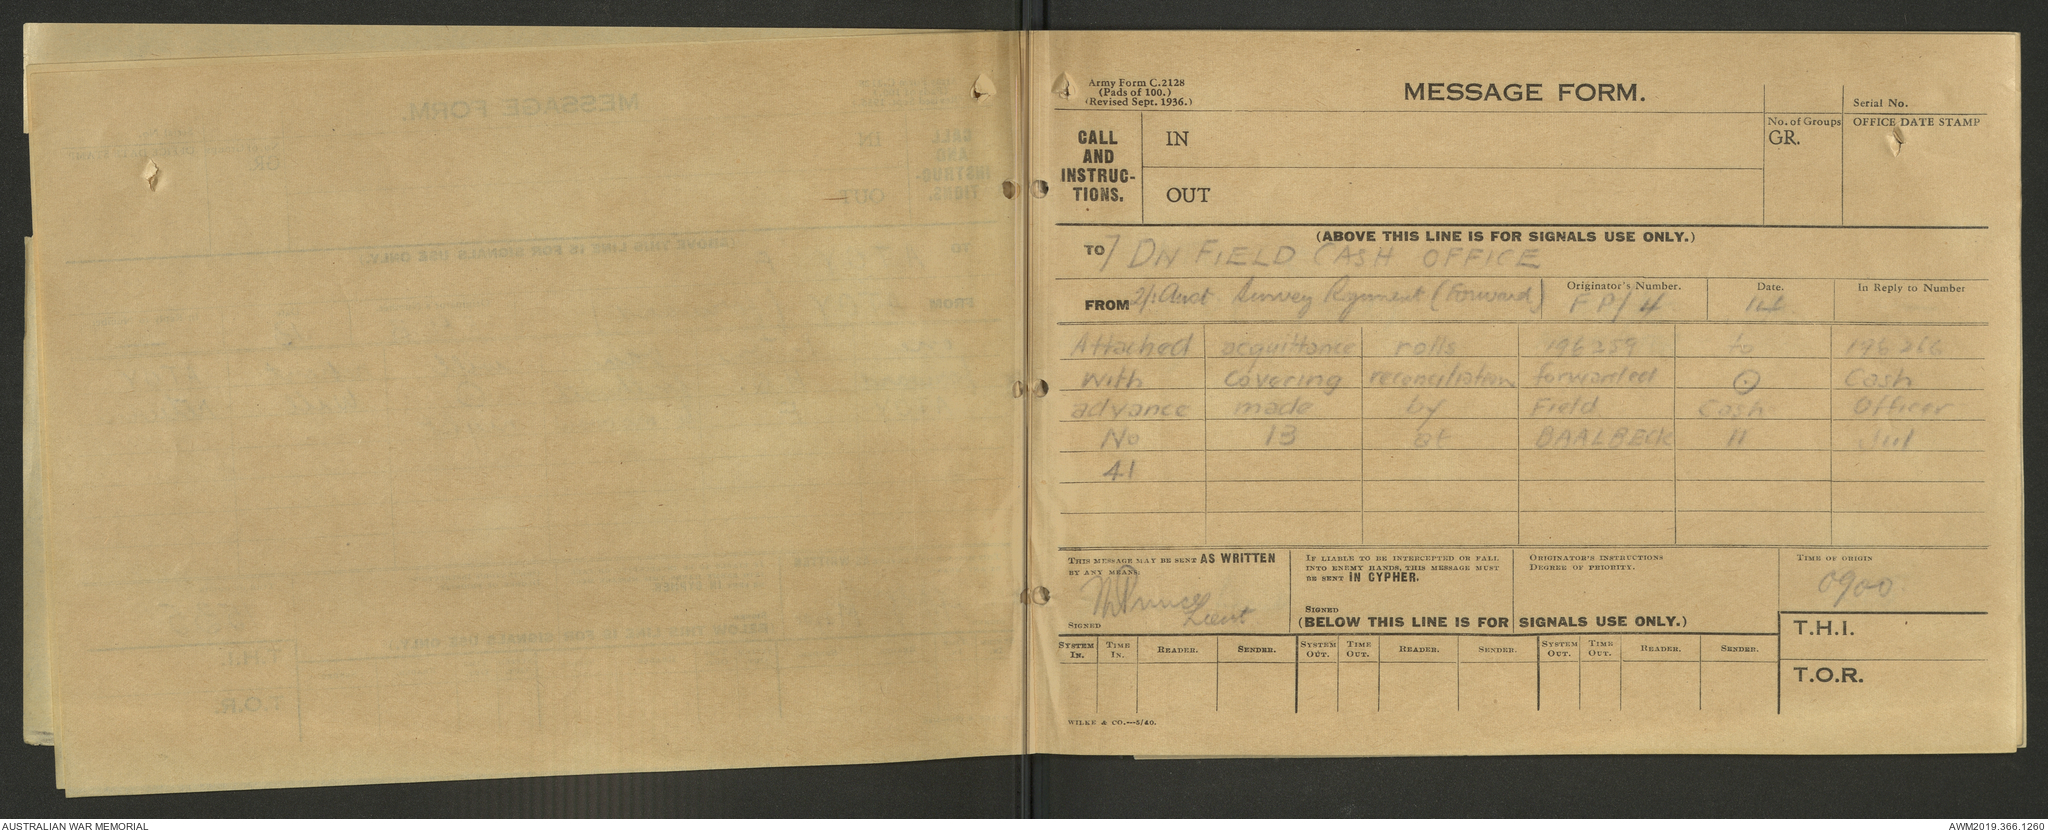 Army Form C.2128
(Pads of 100.)
(Revised Sept. 1936.)
MESSAGE FORM.
Serial No.
CALL AND INSTRUC-TIONS.
IN
OUT
No. of Groups
GR.
OFFICE DATE STAMP
(ABOVE THIS LINE IS FOR SIGNALS USE ONLY.)
TO 7 DN FIELD CASH OFFICE
FROM 2/1 Aust Survey Regiment (Forward)
Originator's Number.
FP/4
Date.
14
In Reply to Number
Attached acquittance rolls 196259 to 196266
with covering reconciliation forwarded ⊙ Cash
advance made by Field Cash Officer
No 13 at BAALBECK 11 Jul
41
THIS MESSAGE MAY BE SENT AS WRITTEN
BY ANY MEANS.
SIGNED
Lieut
IF LIABLE TO BE INTERCEPTED OR FALL
INTO ENEMY HANDS, THIS MESSAGE MUST
BE SENT IN CYPHER.
SIGNED
ORIGINATOR'S INSTRUCTIONS
DEGREE OF PRIORITY.
TIME OF ORIGIN
0900.
(BELOW THIS LINE IS FOR SIGNALS USE ONLY.)
T.H.I.
T.O.R.
SYSTEM IN. TIME IN. READER. SENDER. SYSTEM OUT. TIME OUT. READER. SENDER. SYSTEM OUT. TIME OUT. READER. SENDER.
WILKE & CO.—5/40.
AUSTRALIAN WAR MEMORIAL
AWM2019.366.1260